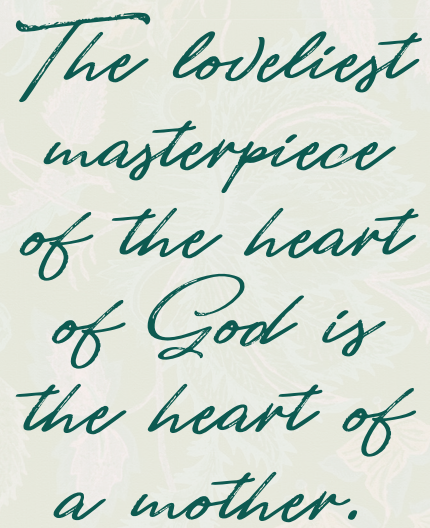 The loveliest
masterpiece
of the heart
of God is
the heart of
a mother.